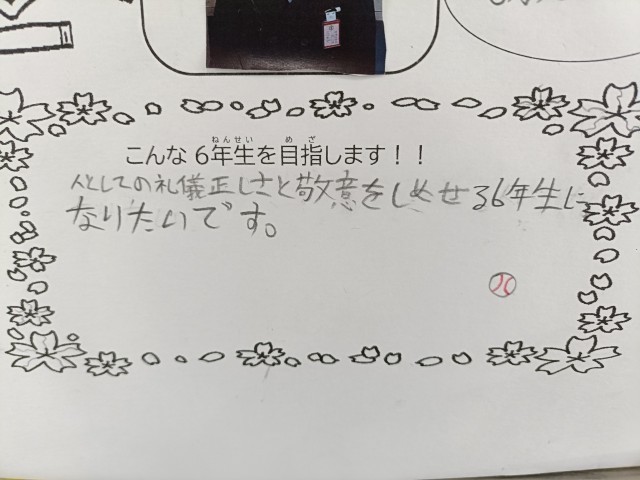 こんな6年生を目指します！！
人としての礼儀正しさと敬意をしめせる6年生に
なりたいです。